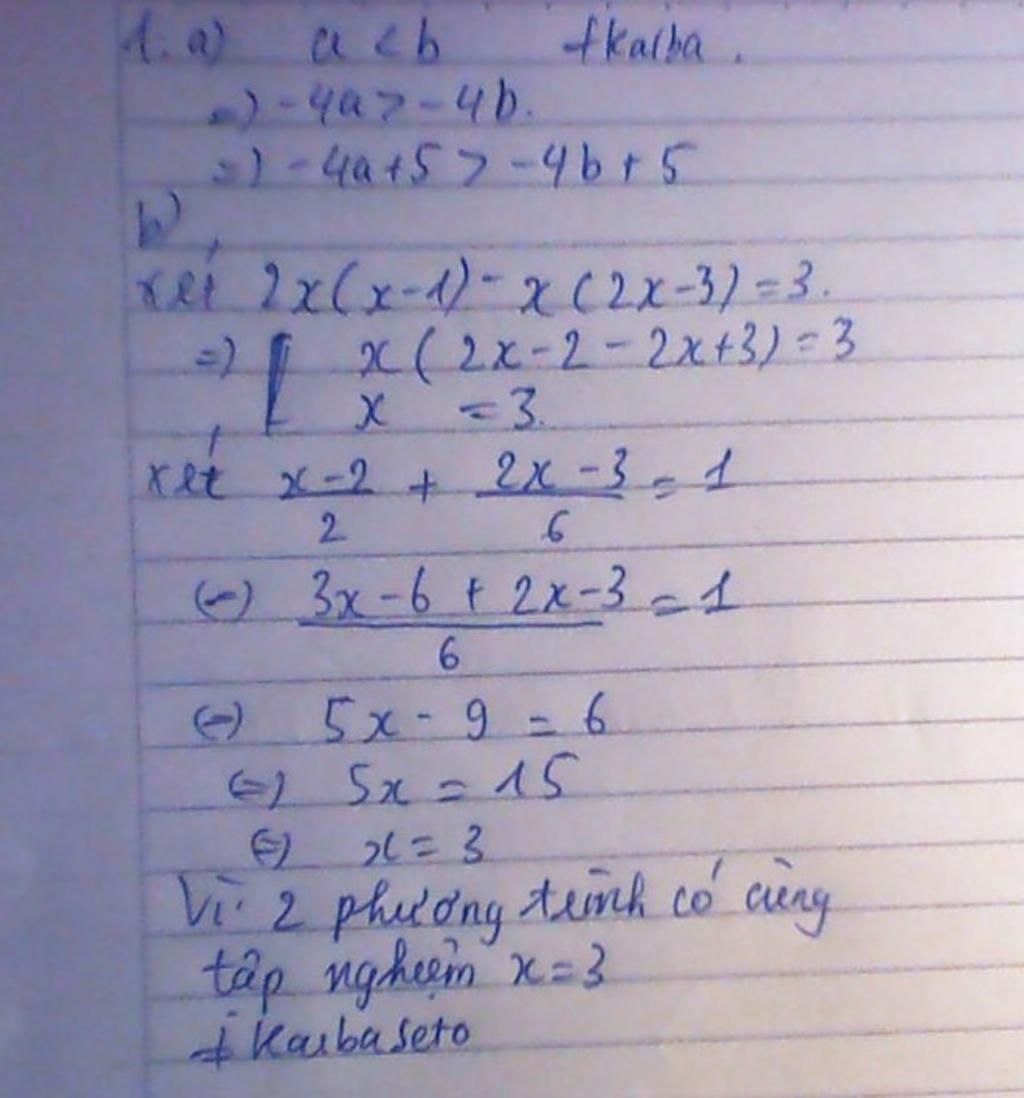 1. a) a < b +kaiba.
=) -4a > -4b.
=) -4a+5 > -4b+5
b)
xét 2x(x-1) - x(2x-3) = 3.
=) [ x(2x-2-2x+3) = 3
x = 3.
xét \frac{x-2}{2} + \frac{2x-3}{6} = 1
(=) \frac{3x-6+2x-3}{6} = 1
(=) 5x - 9 = 6
(=) 5x = 15
(=) x = 3
Vì 2 phương trình có cùng
tập nghiệm x = 3
+ Kaibaseto